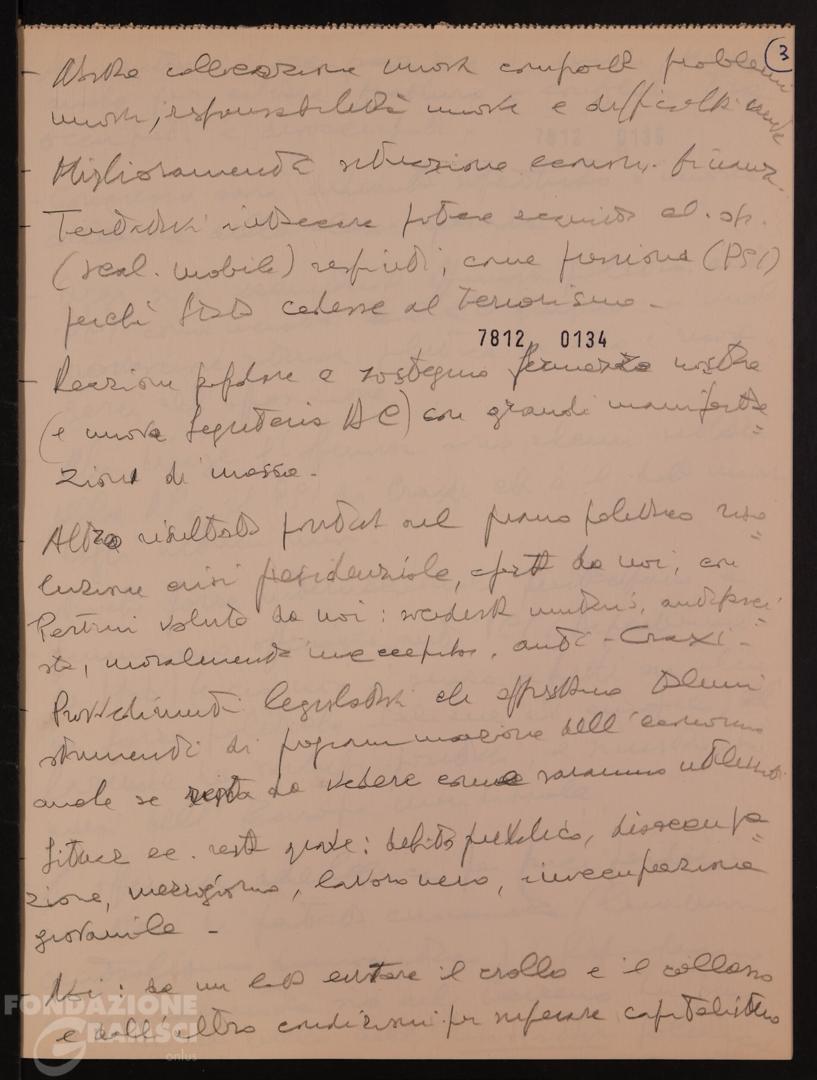 3
- Nostra collocazione nuova comporta problemi
nuovi, responsabilità nuove e difficoltà nuove
- Miglioramento situazione econom. finanz.
- Tentativi intaccare potere acquisto cl. op.
(scal. mobile) respinti, come pressione (PSI)
perché Stato cedesse al terrorismo -
7812 0134
- Reazione popolare e sostegno fermezza nostra
(e nuova segreteria DC) con grandi manifesta=
zioni di massa -
- Altro risultato portato sul piano politico riso=
luzione crisi presidenziale, aperta da noi, con
Pertini voluto da noi: socialista unitario, antifasci=
sta, moralmente ineccepibile, anti-Craxi -
- Provvedimenti legislativi che apprestano alcuni
strumenti di programmazione dell'economia
anche se resta da vedere come saranno utilizzati
- Situaz ec. resta grave: debito pubblico, disoccupa=
zione, mezzogiorno, lavoro nero, inoccupazione
giovanile -
- Noi: da un lato evitare il crollo e il collasso
e dall'altro condizioni per superare capitalistico
FONDAZIONE
GRAMSCI
onlus